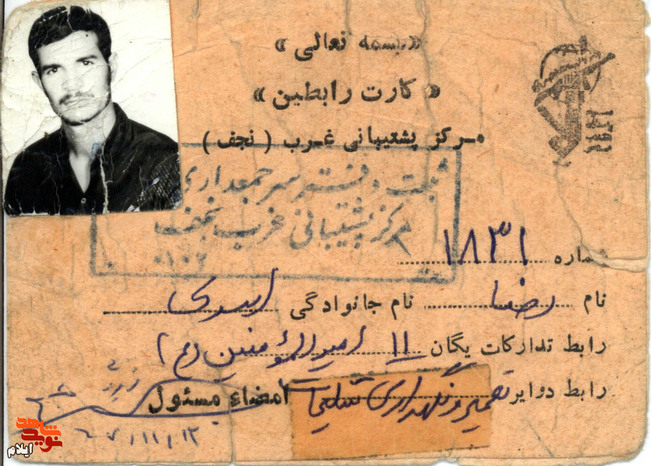 «بسمه تعالی»
«کارت رابطین»
مرکز پشتیبانی غرب (نجف)
مرکز پشتیبانی غرب نجف
شماره ۱۸۳۱
نام رضا نام خانوادگی اسدی
رابط تدارکات یگان ۱۱ امیرالمومنین (ع)
رابط دوایر تعمیر و نگهداری تسلیحات
امضاء مسئول
نوید شاهد
ایلام